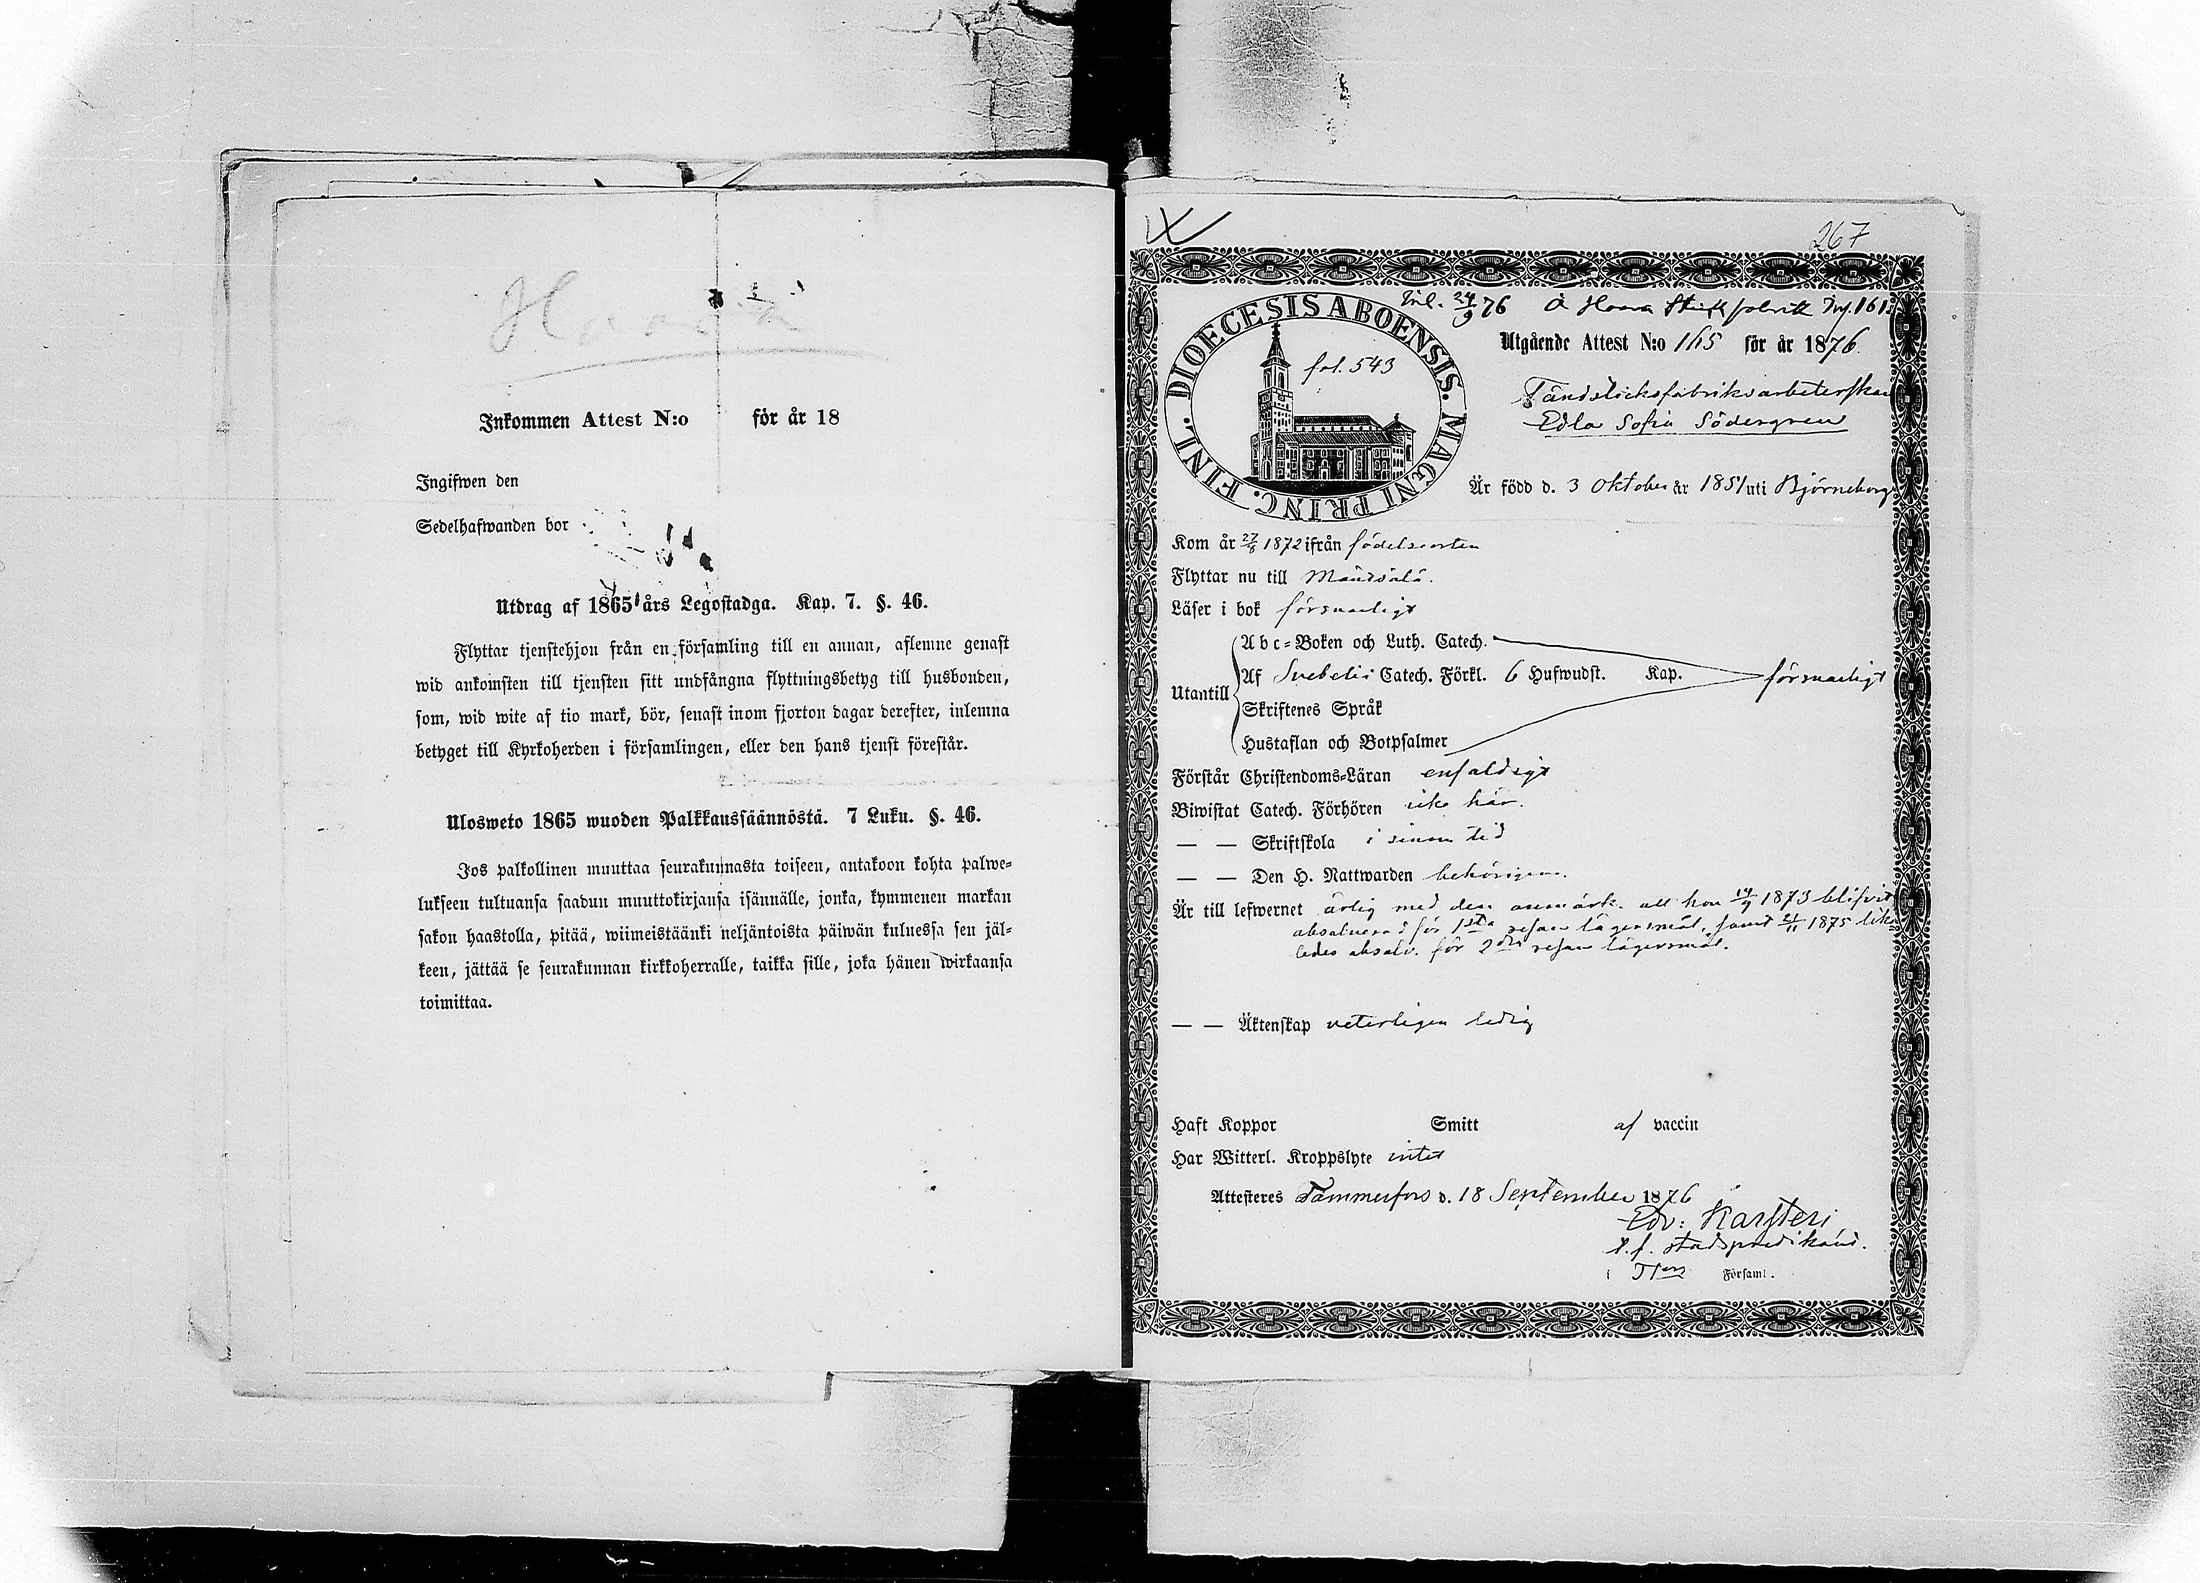 Inkommen Attest N:o för år 18
Ingifwen den
Sedelhafwanden bor
Utdrag af 1865 års Legostadga. Kap. 7. §. 46.
Flyttar tjenstehjon från en församling till en annan, aflemne genast
wid ankomsten till tjensten sitt undfångna flyttningsbetyg till husbonden,
som, wid wite af tio mark, bör, senast inom fjorton dagar derefter, inlemna
betyget till Kyrkoherden i församlingen, eller den hans tjenst förestår.
Ulosweto 1865 wuoden Palkkaussäännöstä. 7 Luku. §. 46.
Jos palkollinen muuttaa seurakunnasta toiseen, antakoon kohta palwe-
lukseen tultuansa saadun muuttokirjansa isännälle, jonka, kymmenen markan
sakon haastolla, pitää, wiimeistäänki neljäntoista päiwän kuluessa sen jäl-
keen, jättää se seurakunnan kirkkoherralle, taikka sille, joka hänen wirkaansa
toimittaa.
267
Inl. 24/9 76 å
DIOECESIS ABOENSIS. MAGNI PRINC. FINL.
fol. 543
Utgående Attest N:o 165 för år 1876
Tändsticksfabriksarbeterskan
Edla Sofia Södergren
Är född d. 3 Oktober år 1851 uti Björneborg
Kom år 27/8 1872 ifrån födelseorten
Flyttar nu till Mäntsälä.
Läser i bok försvarligt
Abc-Boken och Luth. Catech.
Utantill Af Svebelii Catech. Förkl. 6 Hufwudst. Kap. försvarligt
Skriftenes Språk
Hustaflan och Botpsalmer
Förstår Christendoms-Läran enfaldigt
Biwistat Catech. Förhören icke här.
— — Skriftskola i sinom tid
— — Den H. Nattwarden behörigen.
Är till lefwernet ärlig med den anmärk. att hon 14/9 1873 blifvit
absolverad för 1sta resan lägersmål, samt 21/11 1875 lika-
ledes absolv. för 2dra resan lägersmål.
— — Äktenskap veterligen ledig
Haft Koppor Smitt af vaccin
Har Witterl. Kroppslyte intet
Attesteres Tammerfors d. 18 September 1876
Edv: Karsten
t. f. stadspredikant.
i Församl.